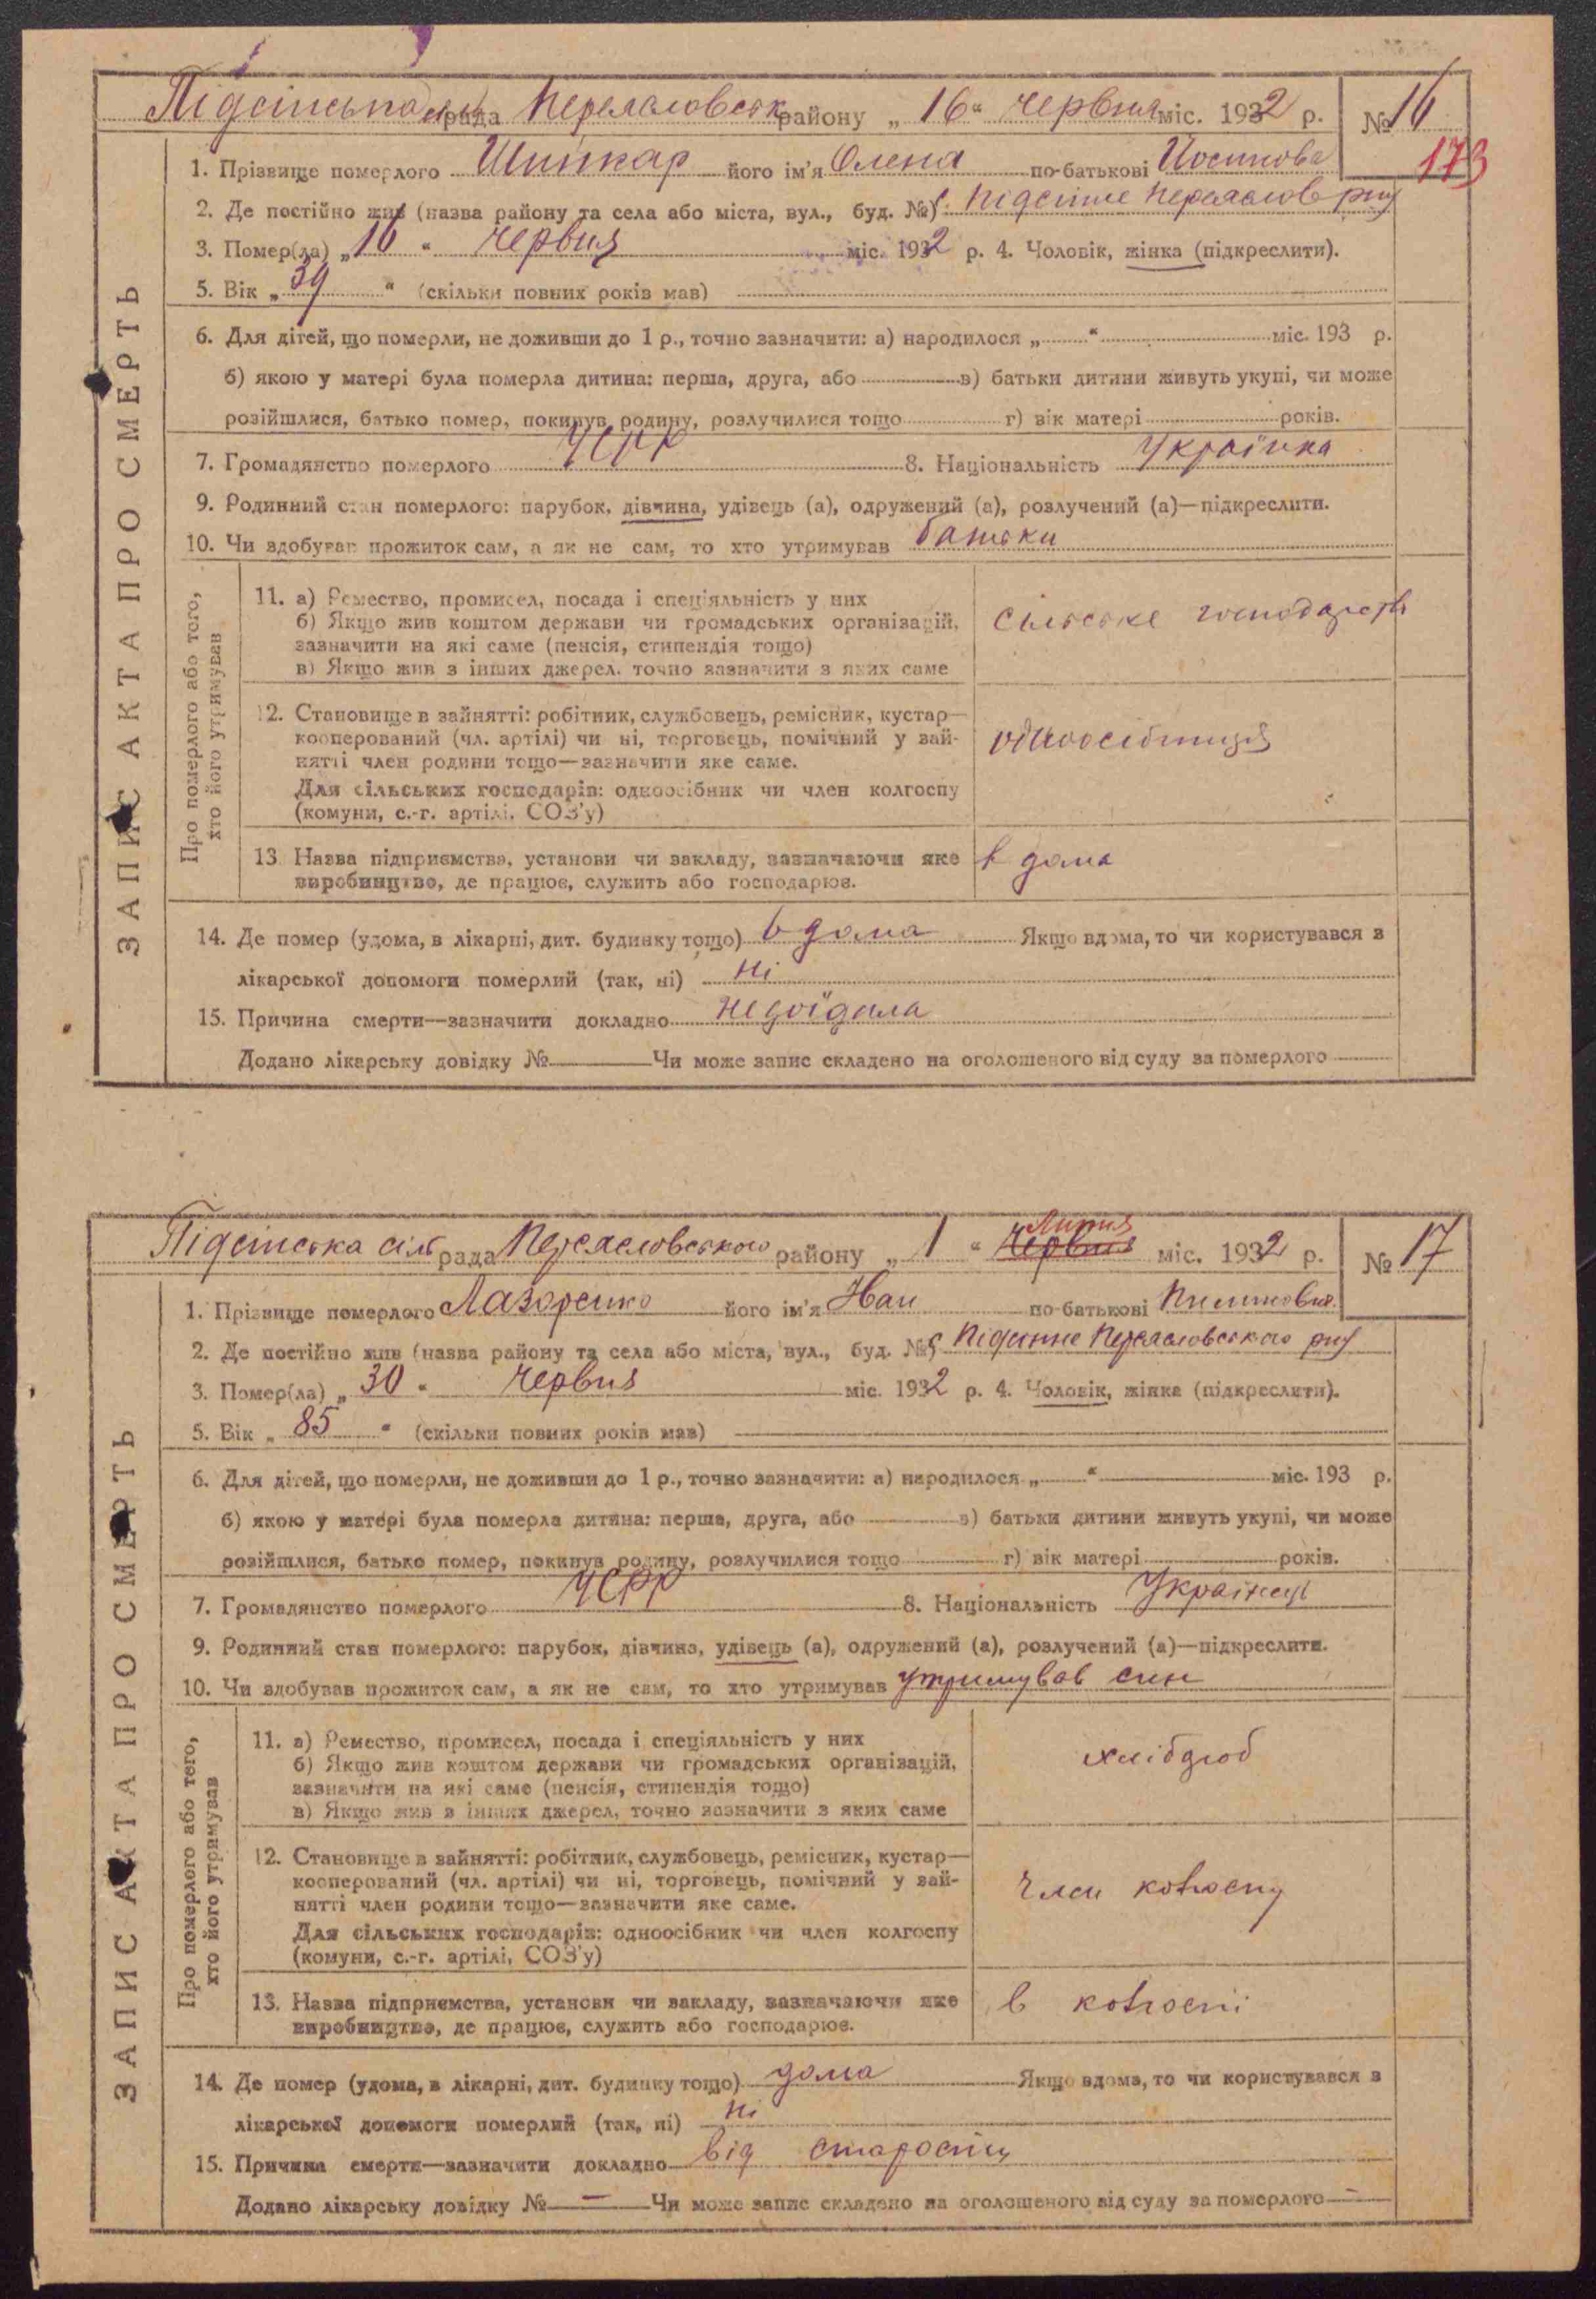 Підсінська сільрада Переяславськ району „ 16 “ червня міс. 1932 р. № 16
173
1. Прізвище померлого Шинкар його ім'я Олена по-батькові Йосипова
2. Де постійно жив (назва району та села або міста, вул., буд. №) с. Підсінне Переяслов р-ну
3. Помер(ла) „ 16 “ червня міс. 1932 р. 4. Чоловік, жінка (підкреслити).
5. Вік „ 39 “ (скільки повних років мав)
6. Для дітей, що померли, не доживши до 1 р., точно зазначити: а) народилося „ “ міс. 193 р.
б) якою у матері була померла дитина: перша, друга, або в) батьки дитини живуть укупі, чи може
розійшлися, батько помер, покинув родину, розлучилися тощо г) вік матері років.
7. Громадянство померлого УСРР 8. Національність Українка
9. Родинний стан померлого: парубок, дівчина, удівець (а), одружений (а), розлучений (а)—підкреслити.
10. Чи здобував прожиток сам, а як не сам, то хто утримував батьки
Про померлого або того,
хто його утримував
11. а) Ремество, промисел, посада і спеціяльність у них
б) Якщо жив коштом держави чи громадських організацій,
зазначити на які саме (пенсія, стипендія тощо)
в) Якщо жив з інших джерел, точно зазначити з яких саме
сільське господарств
12. Становище в зайнятті: робітник, службовець, ремісник, кустар—
кооперований (чл. артілі) чи ні, торговець, помічний у зай-
нятті член родини тощо—зазначити яке саме.
Для сільських господарів: одноосібник чи член колгоспу
(комуни, с.-г. артілі, СОЗ'у)
одноосібниця
13. Назва підприємства, установи чи закладу, зазначаючи яке
виробництво, де працює, служить або господарює.
в дома
14. Де помер (удома, в лікарні, дит. будинку тощо) в дома Якщо вдома, то чи користувався з
лікарської допомоги померлий (так, ні) ні
15. Причина смерти—зазначити докладно недоїдала
Додано лікарську довідку № Чи може запис складено на оголошеного від суду за померлого
ЗАПИС АКТА ПРО СМЕРТЬ
Липня
Підсінська сільрада Переясловського району „ 1 “ червня міс. 1932 р. № 17
1. Прізвище померлого Лазоренко його ім'я Іван по-батькові Пилипович
2. Де постійно жив (назва району та села або міста, вул., буд. №) с Підсинне Переясловського р-ну
3. Помер(ла) „ 30 “ червня міс. 1932 р. 4. Чоловік, жінка (підкреслити).
5. Вік „ 85 “ (скільки повних років мав)
6. Для дітей, що померли, не доживши до 1 р., точно зазначити: а) народилося „ “ міс. 193 р.
б) якою у матері була померла дитина: перша, друга, або в) батьки дитини живуть укупі, чи може
розійшлися, батько помер, покинув родину, розлучилися тощо г) вік матері років.
7. Громадянство померлого УСРР 8. Національність Українець
9. Родинний стан померлого: парубок, дівчина, удівець (а), одружений (а), розлучений (а)—підкреслити.
10. Чи здобував прожиток сам, а як не сам, то хто утримував утримував син
Про померлого або того,
хто його утримував
11. а) Ремество, промисел, посада і спеціяльність у них
б) Якщо жив коштом держави чи громадських організацій,
зазначити на які саме (пенсія, стипендія тощо)
в) Якщо жив з інших джерел, точно зазначити з яких саме
хлібороб
12. Становище в зайнятті: робітник, службовець, ремісник, кустар—
кооперований (чл. артілі) чи ні, торговець, помічний у зай-
нятті член родини тощо—зазначити яке саме.
Для сільських господарів: одноосібник чи член колгоспу
(комуни, с.-г. артілі, СОЗ'у)
член колгоспу
13. Назва підприємства, установи чи закладу, зазначаючи яке
виробництво, де працює, служить або господарює.
в колгоспі
14. Де помер (удома, в лікарні, дит. будинку тощо) дома Якщо вдома, то чи користувався з
лікарської допомоги померлий (так, ні) ні
15. Причина смерти—зазначити докладно від старости
Додано лікарську довідку № — Чи може запис складено на оголошеного від суду за померлого —
ЗАПИС АКТА ПРО СМЕРТЬ